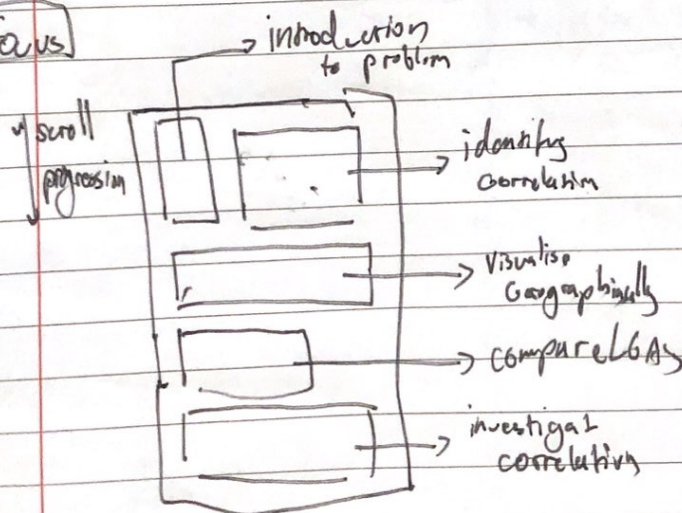 Focus
introduction
to problem
scroll
progression
identify
correlation
Visualise
Geographically
compare LGAs
investigat
correlation